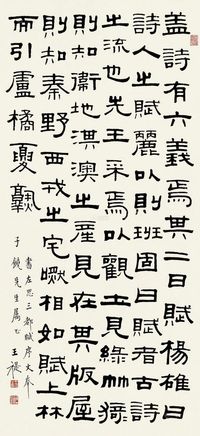 盖詩有六義焉其二曰賦楊雄曰
詩人之賦麗以則班固曰賦者古詩
之流也先王采焉以觀土見綠竹猗
則知衛地淇澳之產見在其版屋
則知秦野西戎之宅嘫相如賦上林
而引盧橘夏熟
書左思三都賦序文奉
子鏡先生屬
王禔